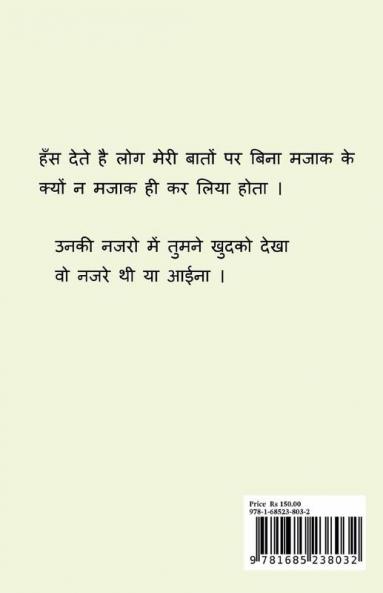 हँस देते है लोग मेरी बातों पर बिना मजाक के
क्यों न मजाक ही कर लिया होता ।
उनकी नजरो में तुमने खुदको देखा
वो नजरे थी या आईना ।
Price Rs 150.00
978-1-68523-803-2
9781685238032